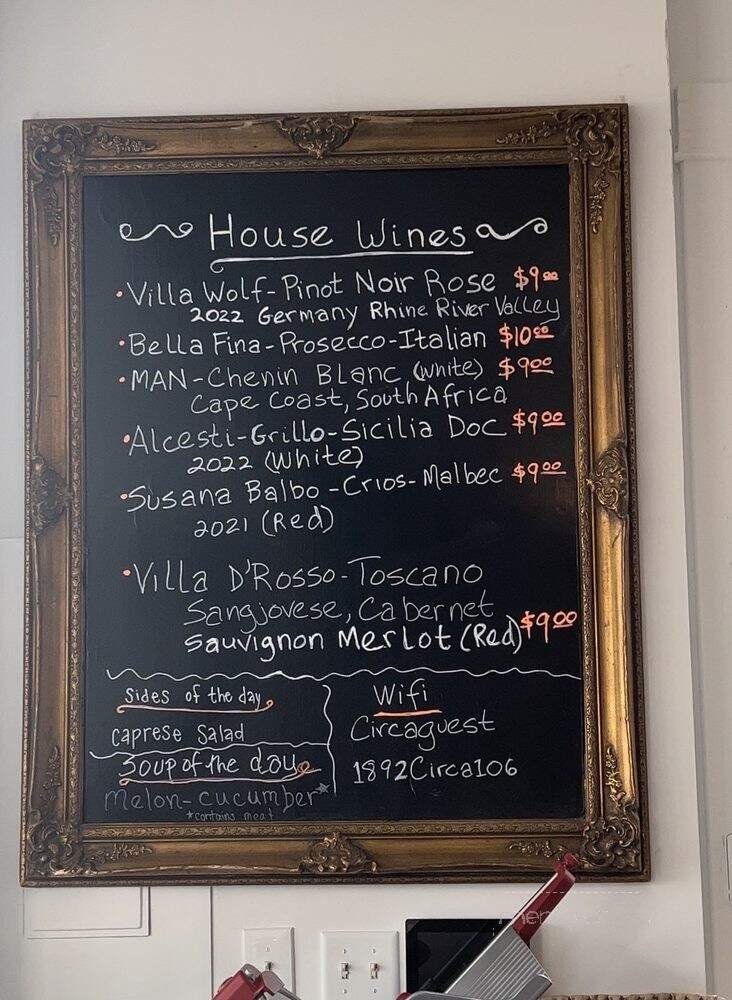 House Wines
•Villa Wolf-Pinot Noir Rose $9⁰⁰
2022 Germany Rhine River Valley
•Bella Fina-Prosecco-Italian $10⁰⁰
•MAN-Chenin Blanc (white) $9⁰⁰
Cape Coast, South Africa
•Alcesti-Grillo-Sicilia Doc $9⁰⁰
2022 (white)
•Susana Balbo-Crios-Malbec $9⁰⁰
2021 (Red)
•Villa D'Rosso-Toscano
Sangjovese, Cabernet
Sauvignon Merlot (Red) $9⁰⁰
Sides of the day
Caprese Salad
Soup of the day
Melon-cucumber*
*contains meat
Wifi
Circaguest
1892Circa106